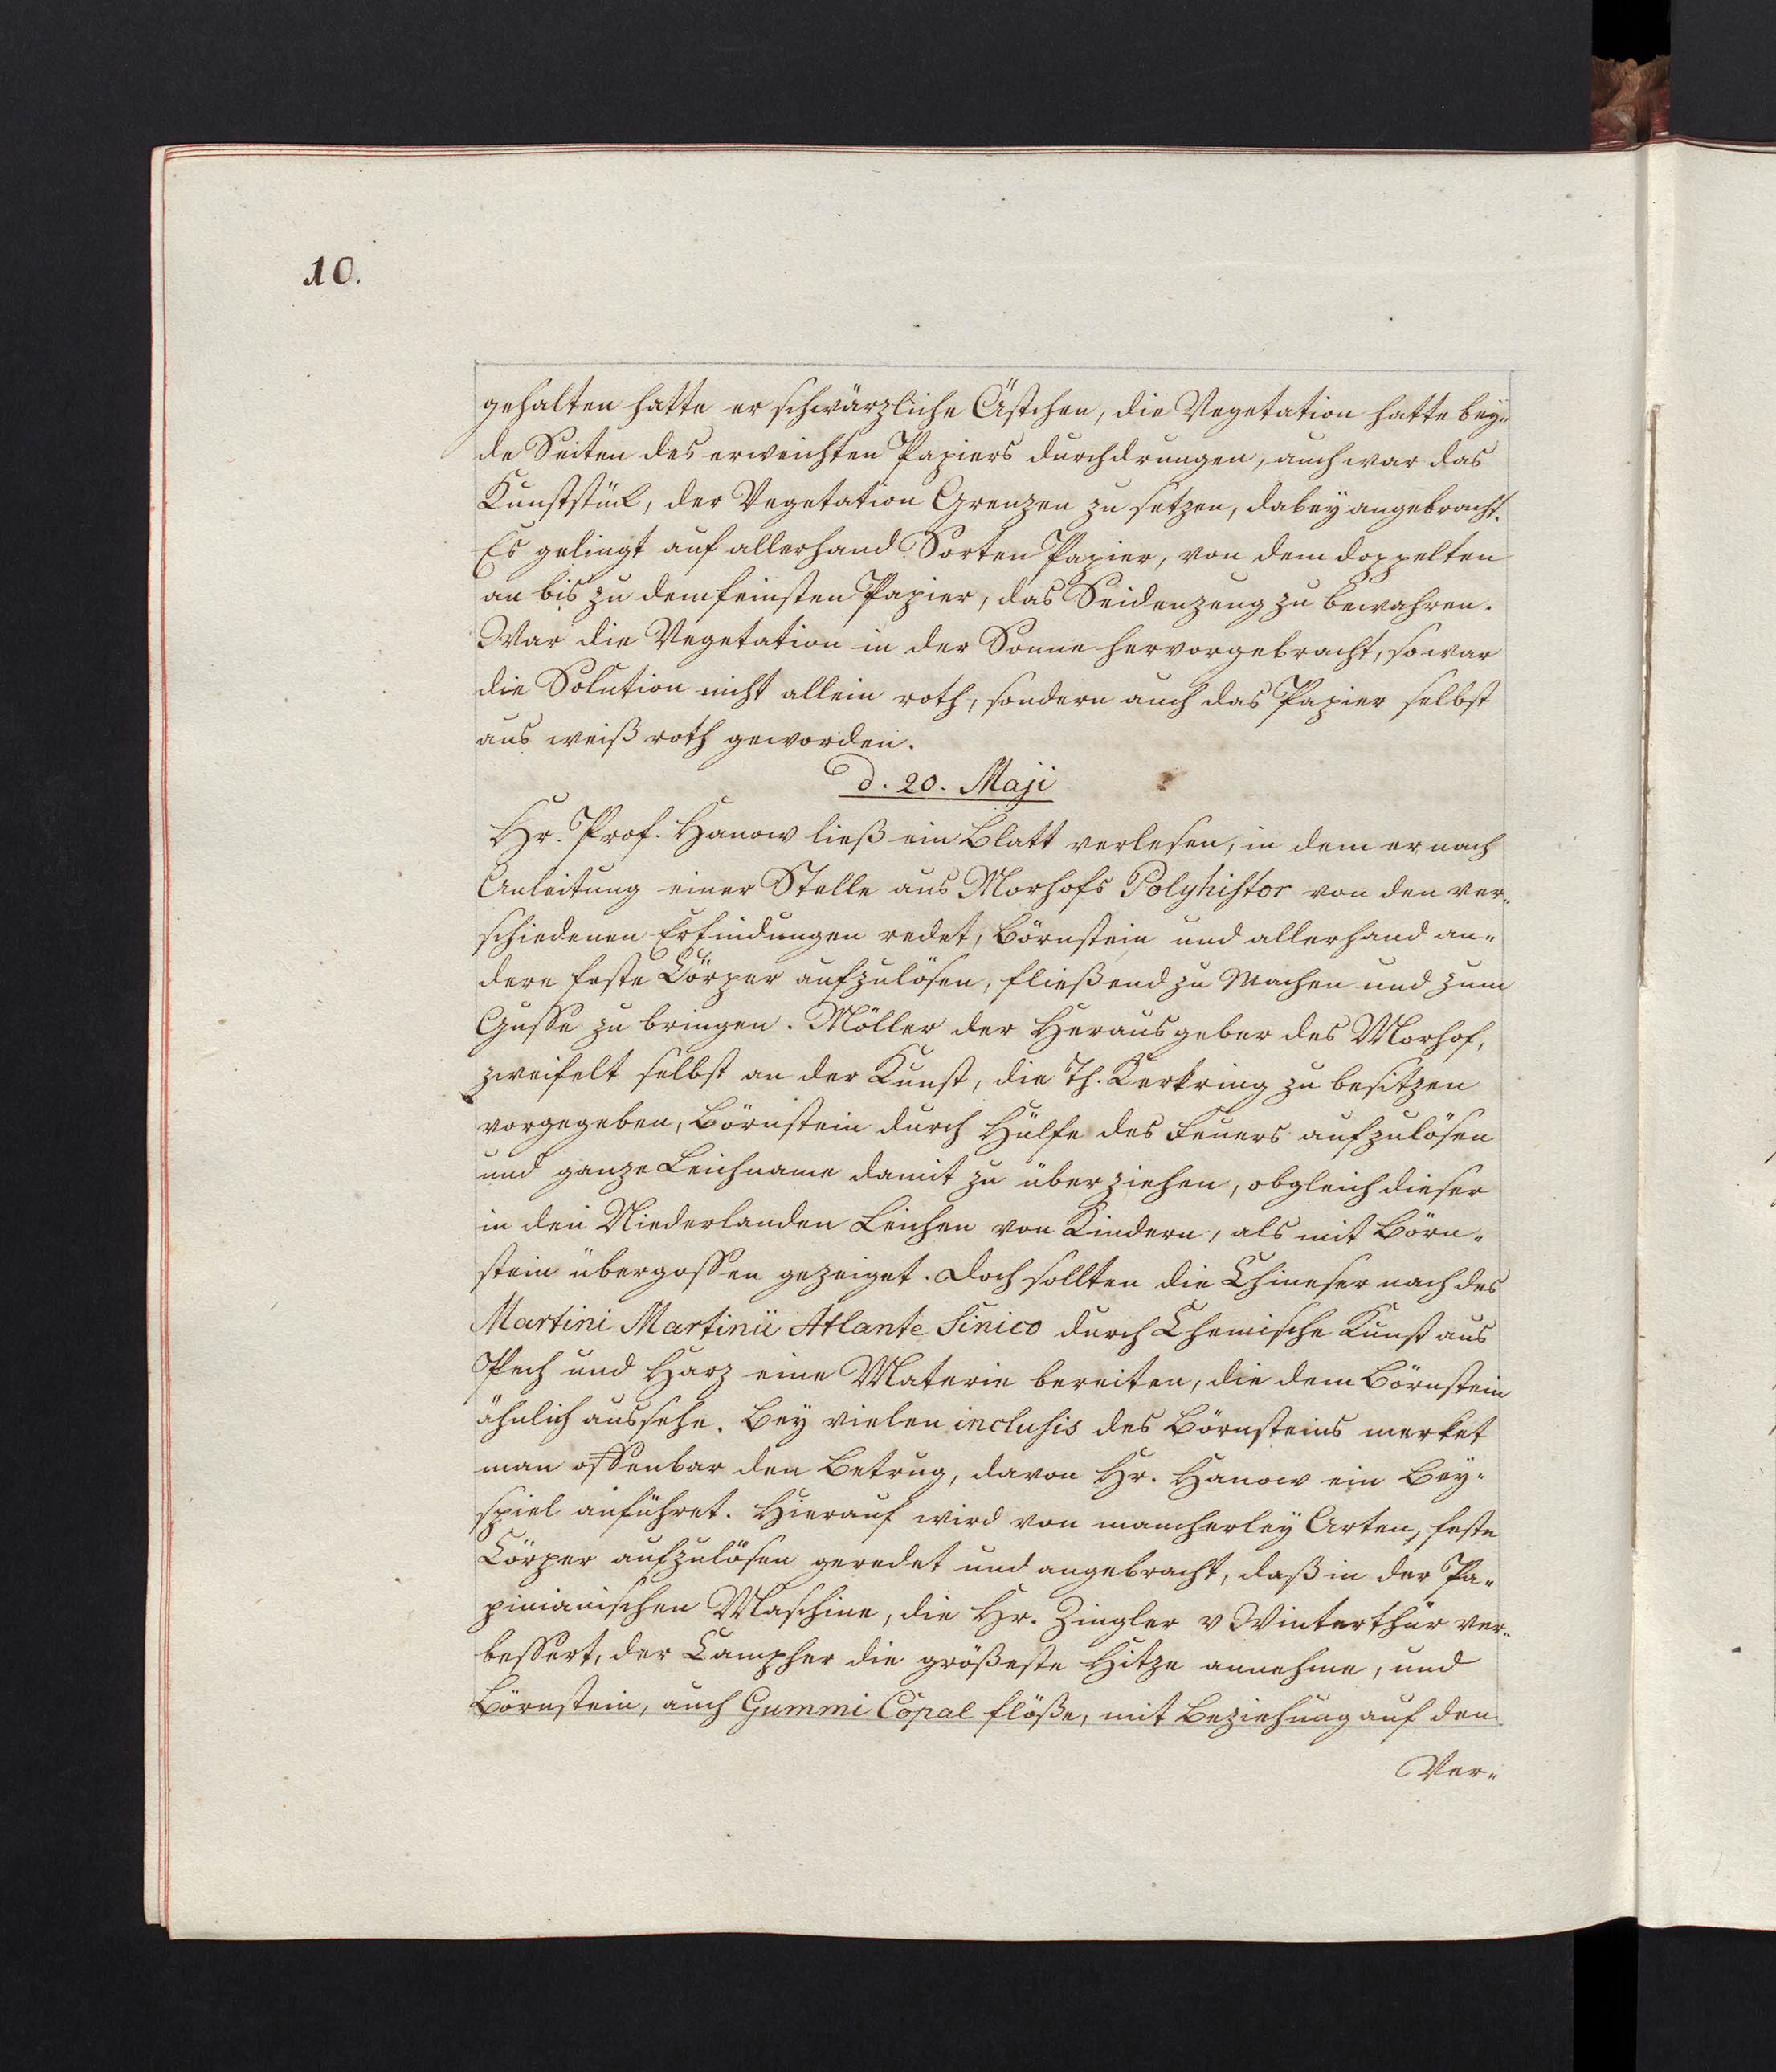 10.
gehalten hatte er schwärzliche Ästchen, die Vegetation hatte bey-
de Seiten des erweichten Papiers durchdrungen, auch war das
Kunststük, der Vegetation Grenzen zu setzen, dabey angebracht.
Es gelingt auf allerhand Sorten Papier, von dem doppelten
an bis zu dem feinsten Papier, das Seidenzeug zu bewahren.
War die Vegetation in der Sonne hervorgebracht, so war
die Solution nicht allein roth, sondern auch das Papier selbst
aus weiß roth geworden.
d. 20. Maji
Hr. Prof. Hanow ließ ein Blatt verlesen, in dem er nach
Anleitung einer Stelle aus Morhofs Polyhistor von den ver-
schiedenen Erfindungen redet, Börnstein und allerhand an-
dere feste Cörper aufzulösen, fließend zu machen und zum
Gusse zu bringen. Möller der Herausgeber des Morhof,
zweifelt selbst an der Kunst, die Th. Kerkring zu besitzen
vorgegeben, Börnstein durch Hülfe des Feuers aufzulösen
und ganze Leichname damit zu überziehen, obgleich dieser
in den Niederlanden Leichen von Kindern, als mit Börn-
stein übergossen gezeiget. Doch sollten die Chineser nach des
Martini Martinii Atlante Sinico durch Chemische Kunst aus
Pech und Harz eine Materie bereiten, die dem Börnstein
ähnlich aussehe. Bey vielen inclusis des Börnsteins merket
man offenbar den Betrug, davon Hr. Hanow ein Bey-
spiel anführet. Hierauf wird von mancherley Arten, feste
Cörper aufzulösen geredet und angebracht, daß in der Pa-
pinianischen Maschine, die Hr. Zingler v Winterthur ver-
bessert, der Campher die größeste Hitze annehme, und
Börnstein, auch Gummi Copal flöße, mit Beziehung auf den
Ver-